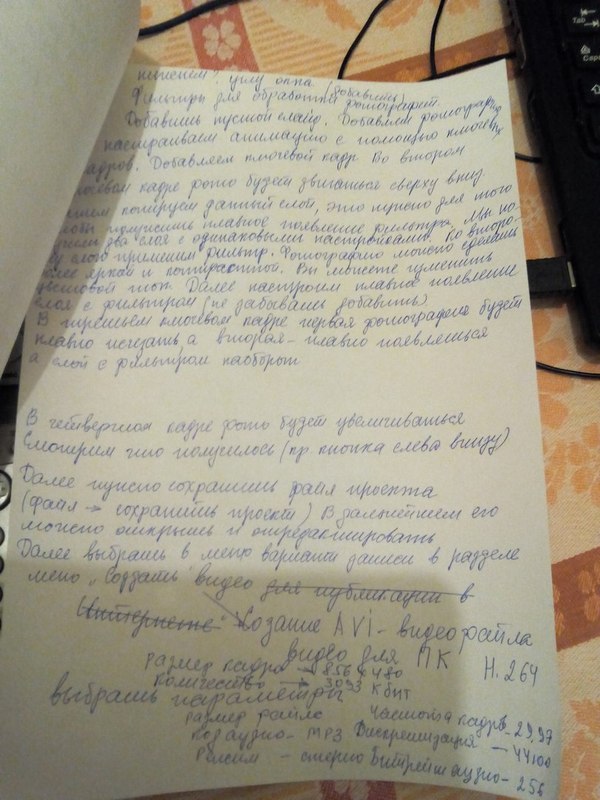 нижнем углу окна (добавить)
Фильтры для обработки фотографий.
Добавить пустой слайд. Добавляем фотографию
настраиваем анимацию с помощью ключевых
адров. Добавляем ключевой кадр Во втором
ючевом кадре фото будет двигаться сверху вниз
копируем данный слой, это нужно для того
тобы получилось плавное появление фильтра. Мы по
два слоя с одинаковыми настройками. Ко второ-
у слою применим фильтр. Фотографию можно сделать
олее яркой и контрастной. Вы можете изменить
цветовой тон. Далее настроим плавное появление
слоя с фильтром (не забывать добавить)
В третьем ключевом кадре первая фотография будет
плавно исчезать, а вторая - плавно появляться
а слой с фильтром наоборот
В четвертом кадре фото будет увеличиваться
Смотрим что получилось (пр. кнопка слева внизу)
Далее нужно сохранить файл проекта
(файл → сохранить проект) В дальнейшем его
можно открыть и отредактировать
Далее выбрать в меню варианты записи в разделе
меню „Создать видео для публикации в
Интернете" → Созание AVI - видеофайла
видео для ПК H.264
Размер кадра → 856 x 480
Количество → 3093 Кбит
выбрать параметры
размер файла Частота кадров 29,97
Код аудио - MP3 Дискретизация - 44100
Режим - стерио Битрейт аудио - 256